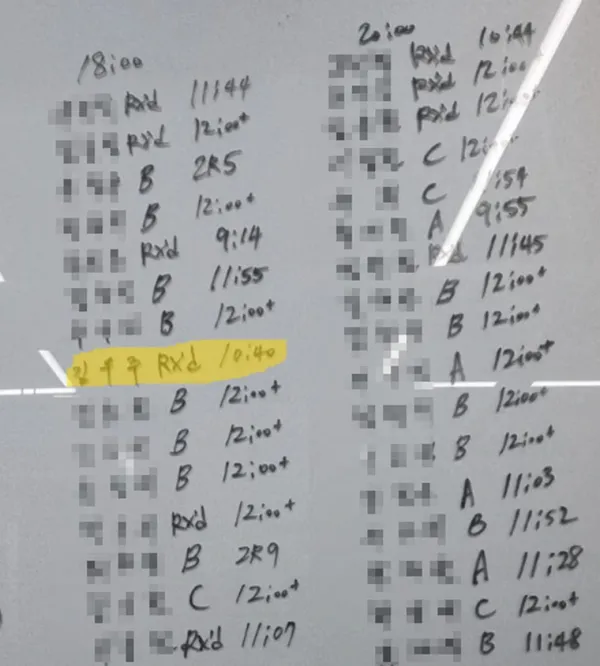 18:00
Rx'd 11:44
Rx'd 12:00+
B 2R5
B 12:00+
Rx'd 9:14
B 11:55
B 12:00+
김우주 Rx'd 10:40
B 12:00+
B 12:00+
B 12:00+
Rx'd 12:00+
B 2R9
C 12:00+
Rx'd 11:07
20:00
Rx'd 10:44
Rx'd 12:00+
Rx'd
C
C
A 9:55
11:45
B 12:00+
B 12:00+
A 12:00+
B 12:00+
B 12:00+
A 11:03
B 11:52
A 11:28
C 12:00+
B 11:48